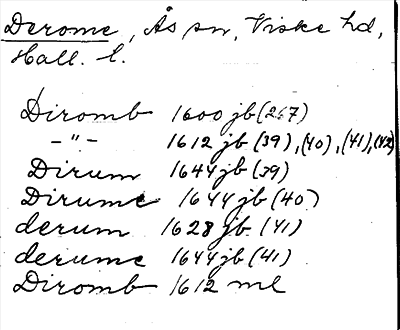 Derome, Ås sn, Viske hd,
Hall. l.
Diromb 1600 jb (267)
-"- 1612 jb (39), (40), (41), (42)
Dirum 1644 jb (39)
Dirume 1644 jb (40)
derum 1628 jb (41)
derume 1644 jb (41)
Diromb 1612 ml